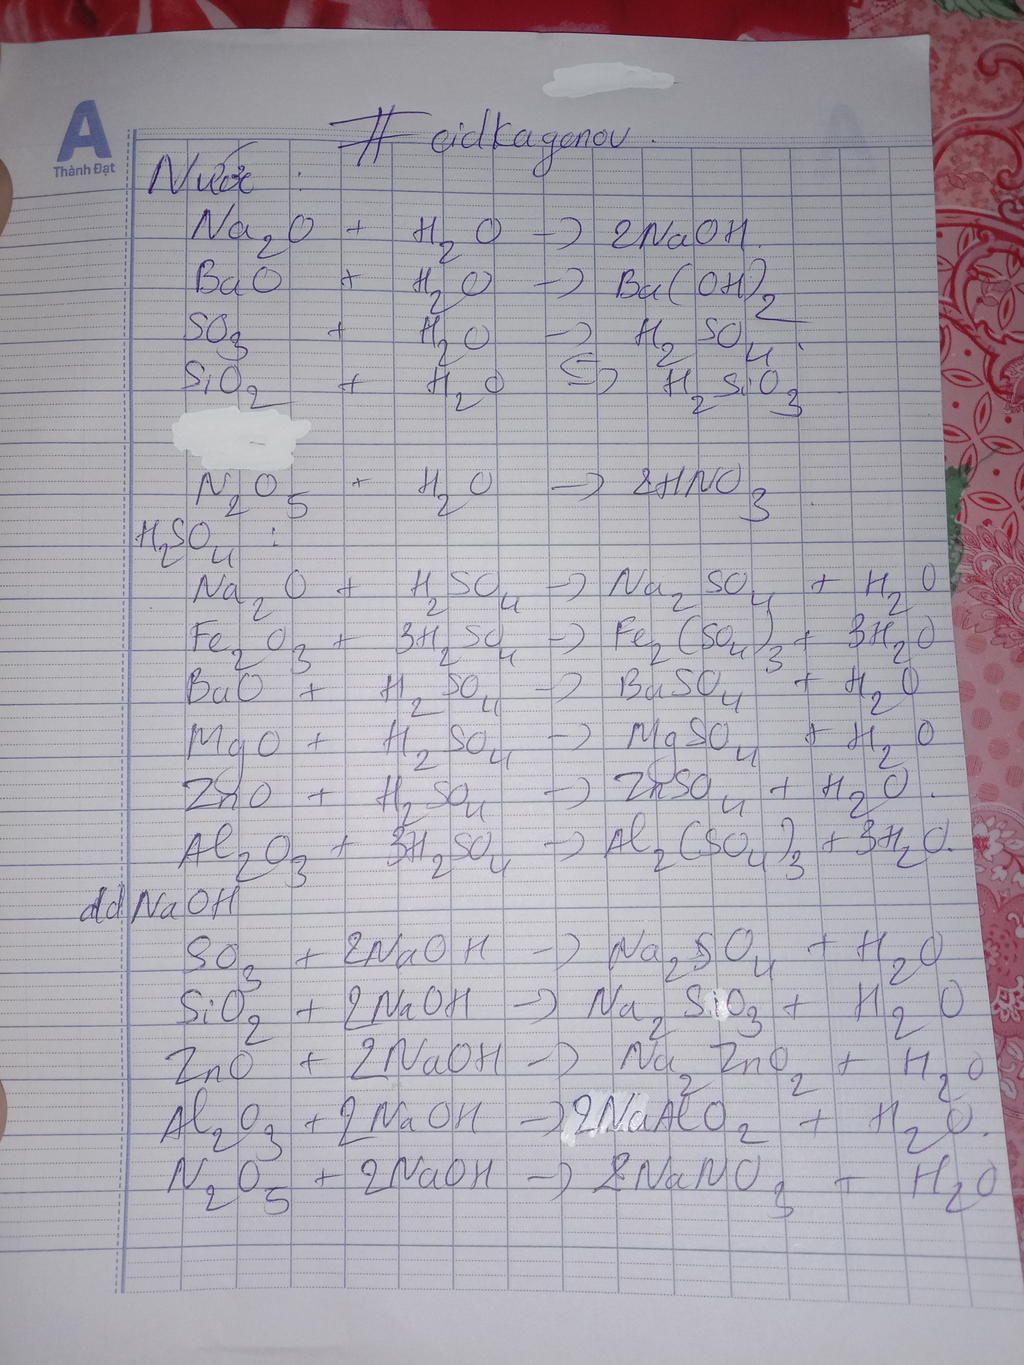 A
Thành Đạt
# eidkagenou.
Nước :
Na2O + H2O -> 2NaOH.
BaO + H2O -> Ba(OH)2
SO3 + H2O -> H2SO4.
SiO2 + H2O ⇆ H2SiO3
N2O5 + H2O -> 2HNO3
H2SO4 :
Na2O + H2SO4 -> Na2SO4 + H2O
Fe2O3 + 3H2SO4 -> Fe2(SO4)3 + 3H2O
BaO + H2SO4 -> BaSO4 + H2O
MgO + H2SO4 -> MgSO4 + H2O
ZnO + H2SO4 -> ZnSO4 + H2O.
Al2O3 + 3H2SO4 -> Al2(SO4)3 + 3H2O.
dd NaOH
SO3 + 2NaOH -> Na2SO4 + H2O
SiO2 + 2NaOH -> Na2SiO3 + H2O
ZnO + 2NaOH -> Na2ZnO2 + H2O
Al2O3 + 2NaOH -> 2NaAlO2 + H2O.
N2O5 + 2NaOH -> 2NaNO3 + H2O